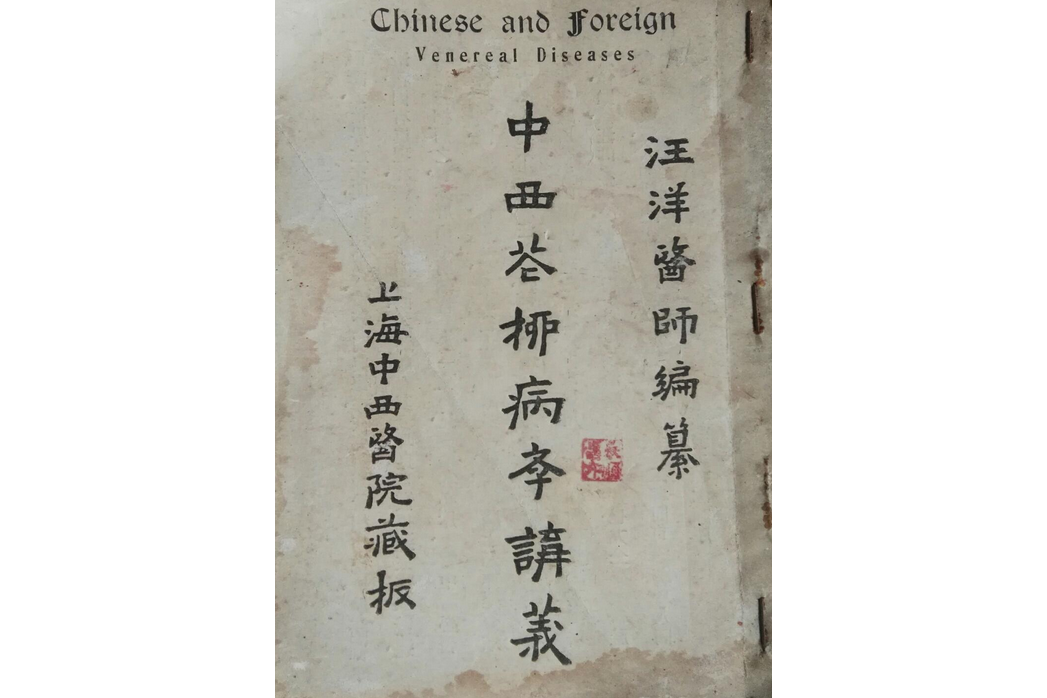 Chinese and Foreign
Venereal Diseases
汪洋醫師編纂
中西花柳病學講義
上海中西醫院藏板